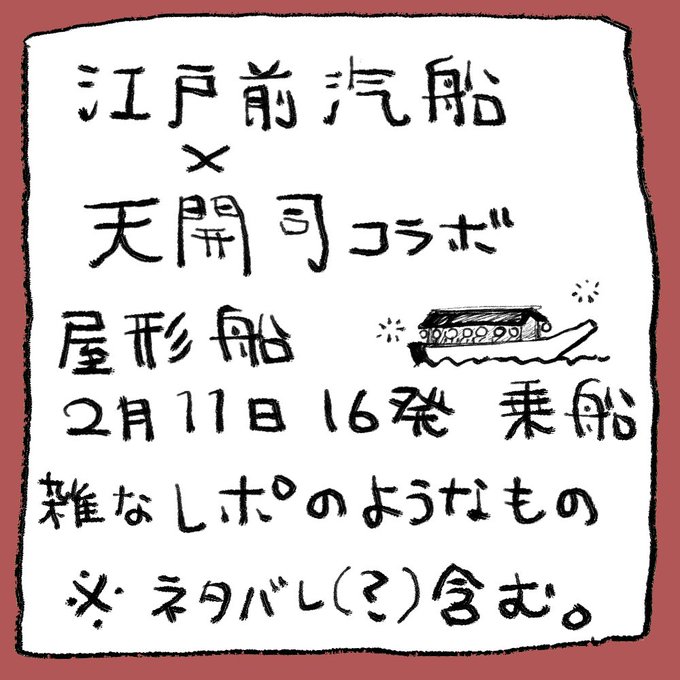 江戸前汽船
×
天開司コラボ
屋形船
2月11日 16発 乗船
雑なレポのようなもの
※ネタバレ(?)含む。